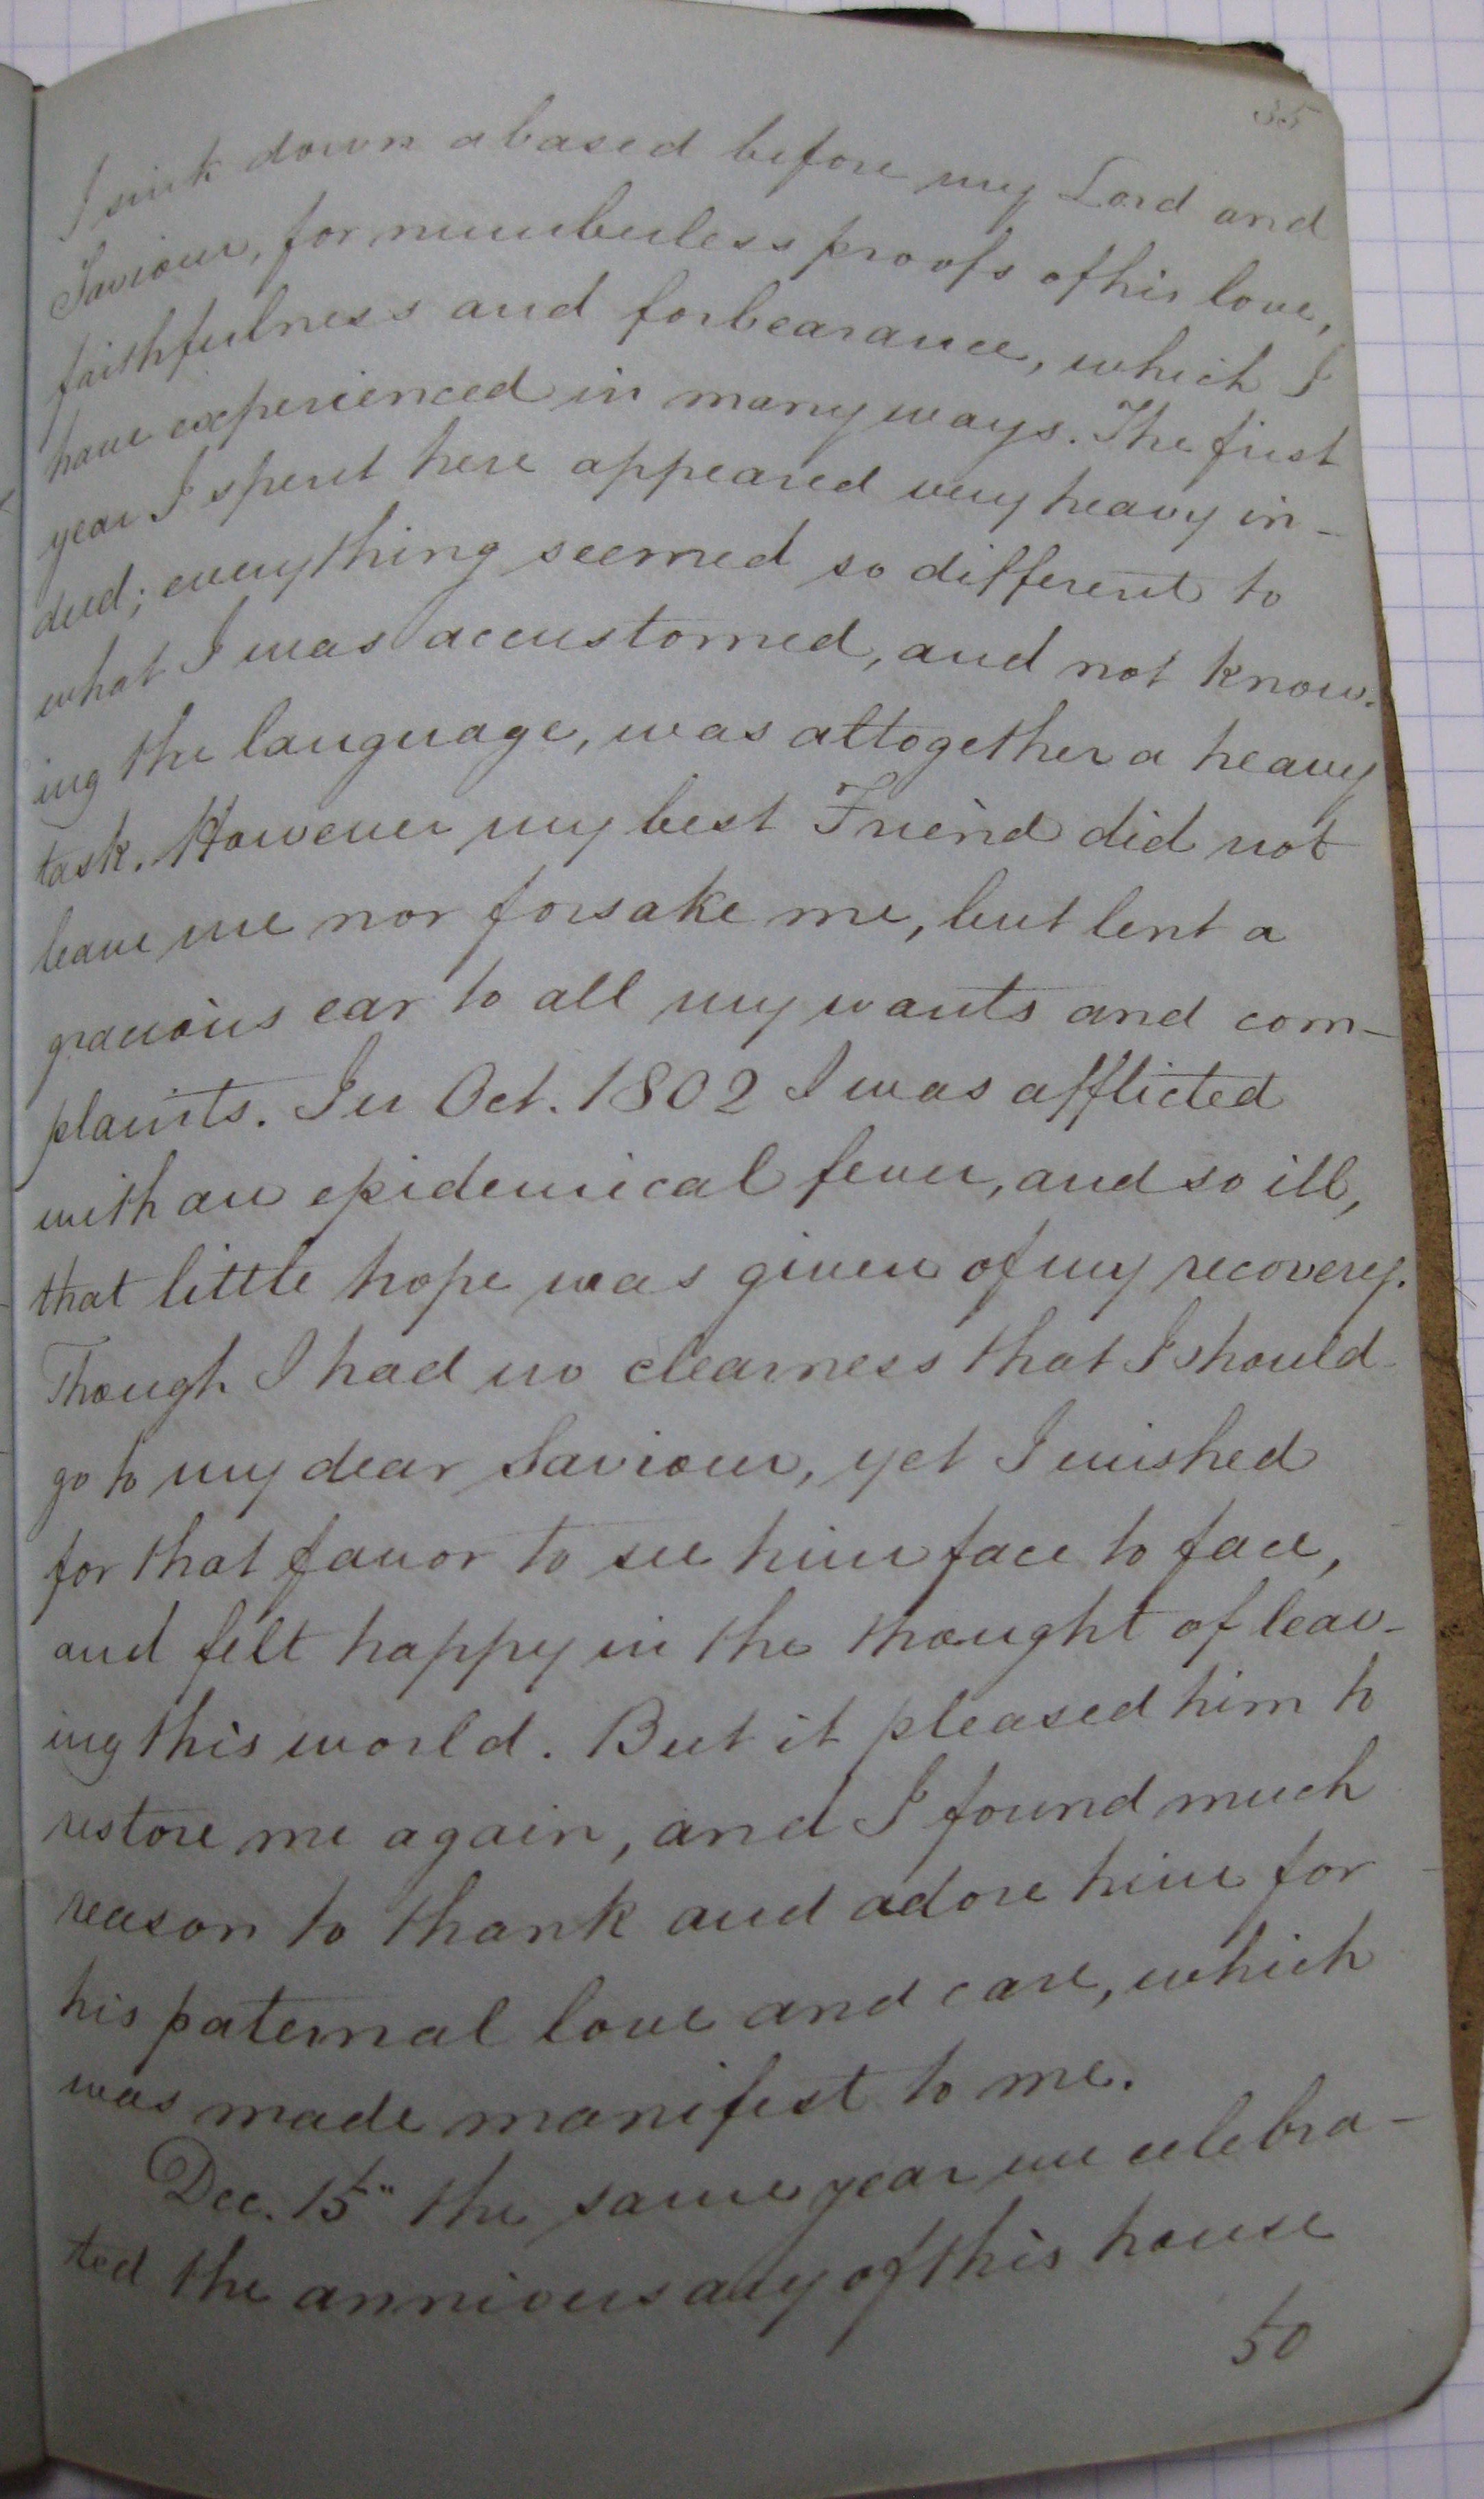 35
I sink down abased before my Lord and
Saviour, for numberless proofs of his love,
faithfulness and forbearance, which I
have experienced in many ways. The first
year I spent here appeared very heavy in-
deed; everything seemed so different to
what I was accustomed, and not know-
ing the language, was altogether a heavy
task. However my best Friend did not
leave me nor forsake me, but lent a
gracious ear to all my wants and com-
plaints. In Oct. 1802 I was afflicted
with an epidemical fever, and so ill,
that little hope was given of my recovery.
Though I had no clearness that I should
go to my dear Saviour, yet I wished
for that favor to see him face to face,
and felt happy in the thought of leav-
ing this world. But it pleased him to
restore me again, and I found much
reason to thank and adore him for
his paternal love and care, which
was made manifest to me.
Dec. 15" the same year we celebra-
ted the anniversary of this house
50